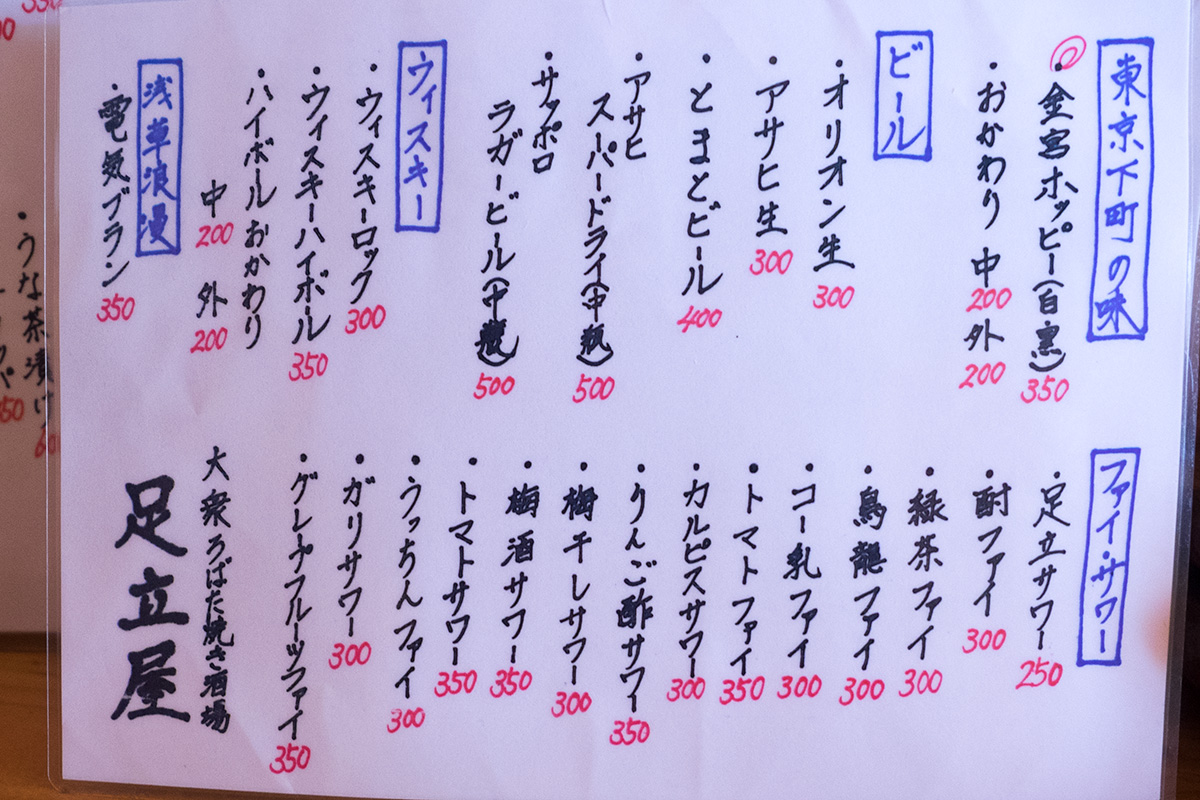 東京下町の味
・金宮ホッピー(白黒)350
・おかわり 中200 外200
ビール
・オリオン生 300
・アサヒ生 300
・とまとビール 400
・アサヒ
スーパードライ(中瓶)500
・サッポロ
ラガービール(中瓶)500
ウィスキー
・ウィスキーロック 300
・ウィスキーハイボール 350
・ハイボールおかわり
中200 外200
浅草浪漫
・電気ブラン 350
ファイ・サワー
・足立サワー 250
・酎ファイ 300
・緑茶ファイ 300
・烏龍ファイ 300
・コー乳ファイ 300
・トマトファイ 350
・カルピスサワー 300
・りんご酢サワー 350
・梅干しサワー 300
・梅酒サワー 350
・トマトサワー 350
・ウッちんファイ 300
・ガリサワー 300
・グレープフルーツファイ 350
大衆ろばた焼き酒場
足立屋
・うな茶漬け 60